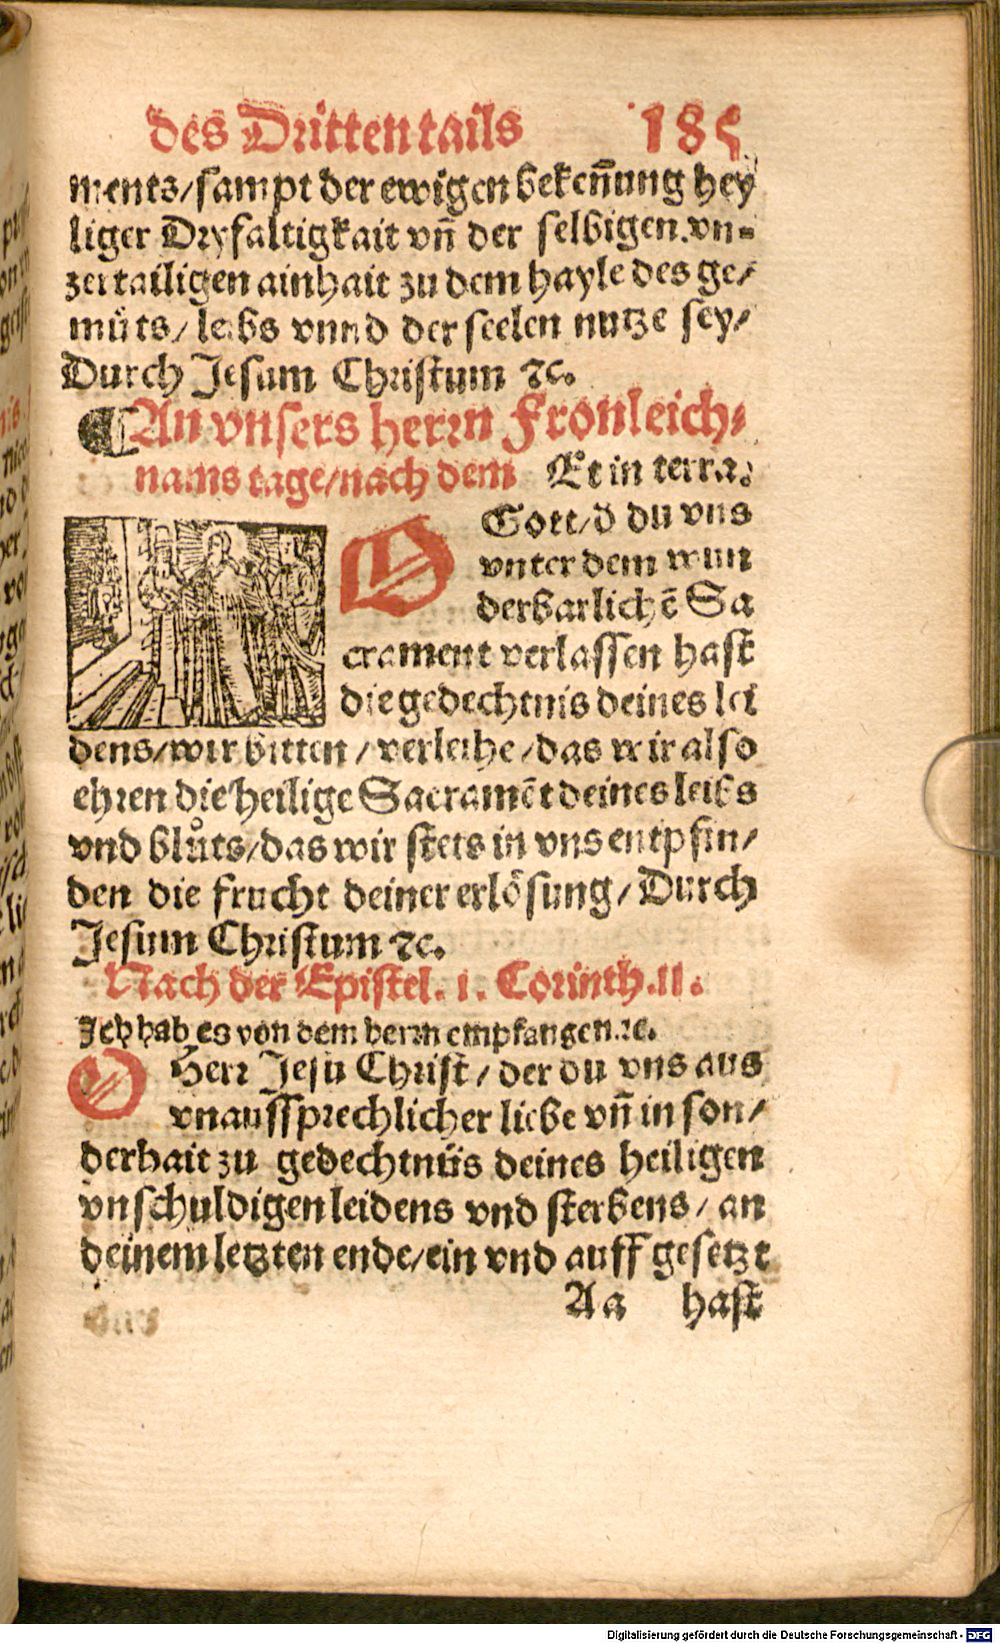 des Dritten tails 185
ments/sampt der ewigen bekeñung hey
liger Dryfaltigkait vñ der selbigen vn-
zertailigen ainhait zu dem hayle des ge/
muͤts/ leibs vnnd der seelen nutze sey/
Durch Jesum Christum ꝛc.
¶An vnsers herrn Fronleich-
nams tage/nach dem Et in terra.
O Gott/d du vns
vnter dem wun
derbarlichẽ Sa
crament verlassen hast
die gedechtnis deines lei
dens/wir bitten/verleihe/das wir also
ehren die heilige Sacramẽt deines leibs
vnd bluͦts/das wir stets in vns entpfin/
den die frucht deiner erloͤsung/Durch
Jesum Christum ꝛc.
Nach der Epistel. 1. Corinth.11.
Jch hab es von dem herrn empfangen.ꝛc.
O Herr Jesu Christ/der du vns aus
vnaussprechlicher liebe vñ in son/
derhait zu gedechtnüs deines heiligen
vnschuldigen leidens vnd sterbens/an
deinem letzten ende/ein vnd auff gesetzt
Aa hast
Digitalisierung gefördert durch die Deutsche Forschungsgemeinschaft - DFG